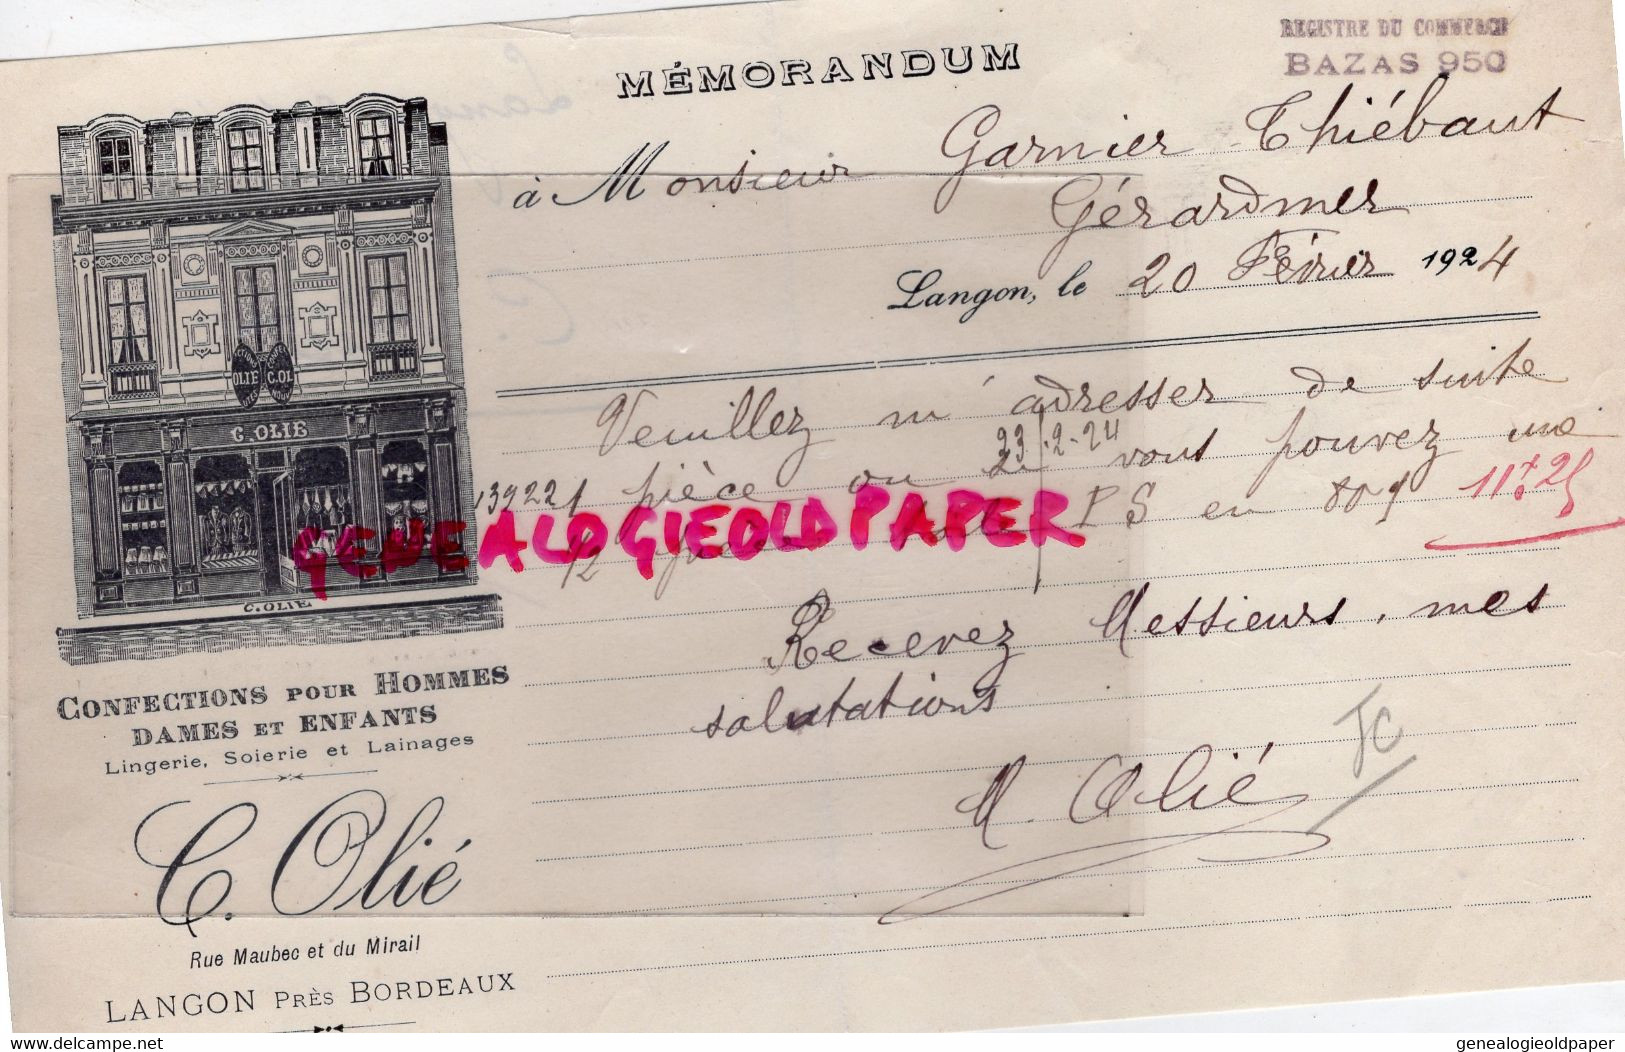 REGISTRE DU COMMERCE
BAZAS 950
MÉMORANDUM
à Monsieur Garnier-Thiébaut
Gérardmer
Langon, le 20 Février 1924
Veuillez m'adresser de suite
23.2.24
13922 1 pièce ou vous pouvez une
1/2 PS en 80 11f25
GENEALOGIEOLDPAPER
Recevez Messieurs, mes
salutations
M. Olié
JC
OLIE C.OL
C. OLIE
C. OLIE
CONFECTIONS POUR HOMMES
DAMES ET ENFANTS
Lingerie, Soierie et Lainages
C. Olié
Rue Maubec et du Mirail
LANGON PRÈS BORDEAUX
delcampe.net
genealogieoldpaper